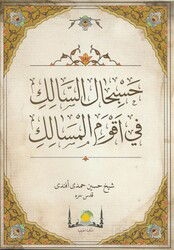 حسبحال السالك
في أقوم المسالك
شيخ حسين حمدي أفندي
قدس سره